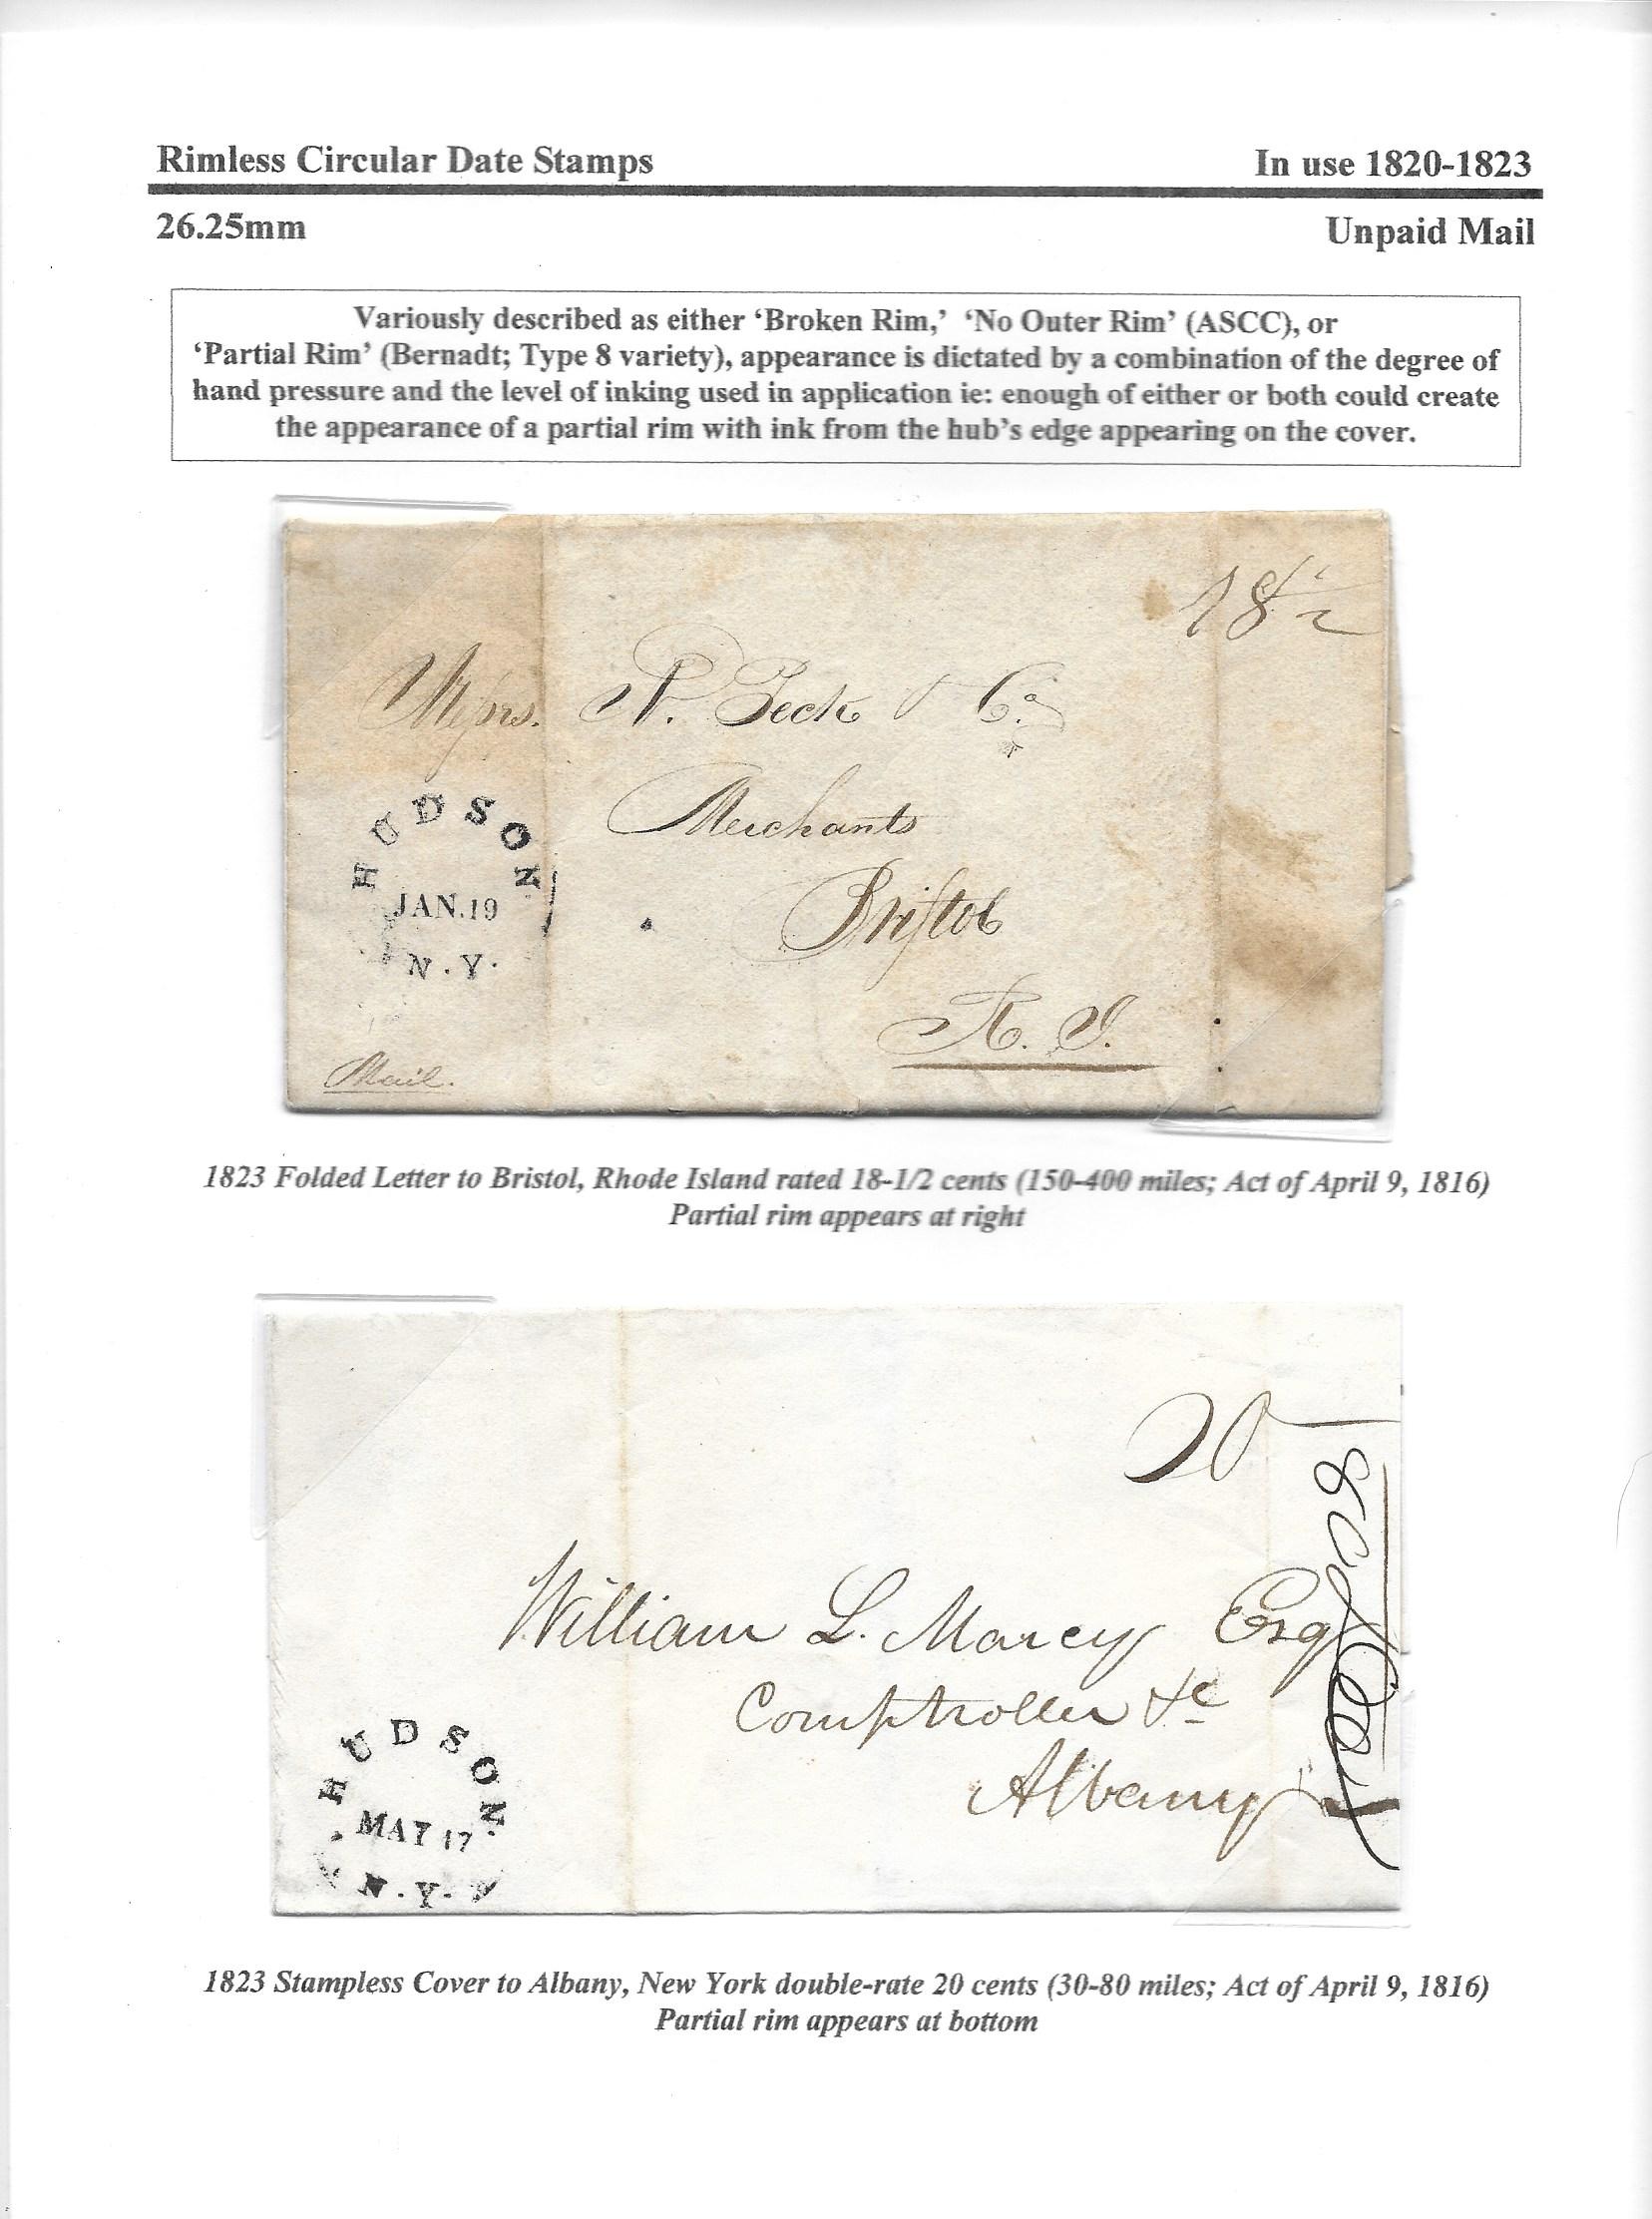 Rimless Circular Date Stamps In use 1820-1823
26.25mm Unpaid Mail
Variously described as either ‘Broken Rim,’ ‘No Outer Rim’ (ASCC), or
‘Partial Rim’ (Bernadt; Type 8 variety), appearance is dictated by a combination of the degree of
hand pressure and the level of inking used in application ie: enough of either or both could create
the appearance of a partial rim with ink from the hub’s edge appearing on the cover.
18 1/2
Messrs. N. Peck & Co
Merchants
Bristol
R. I.
HUDSON
JAN.19
N.Y.
Mail.
1823 Folded Letter to Bristol, Rhode Island rated 18-1/2 cents (150-400 miles; Act of April 9, 1816)
Partial rim appears at right
20
William L. Marcy Esq
Comptroller &c
Albany
HUDSON
MAY 17
N.Y.
1823 Stampless Cover to Albany, New York double-rate 20 cents (30-80 miles; Act of April 9, 1816)
Partial rim appears at bottom